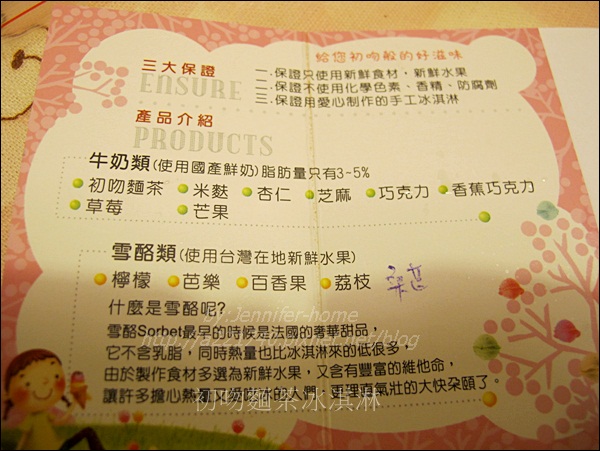 給您初吻般的好滋味
三大保證
ENSURE
一.保證只使用新鮮食材，新鮮水果
二.保證不使用化學色素、香精、防腐劑
三.保證用愛心制作的手工冰淇淋
產品介紹
PRODUCTS
牛奶類(使用國產鮮奶)脂肪量只有3~5%
初吻麵茶 米麩 杏仁 芝麻 巧克力 香蕉巧克力
草莓 芒果
雪酪類(使用台灣在地新鮮水果)
檸檬 芭樂 百香果 荔枝
什麼是雪酪呢?
by:Jennifer-home
雪酪Sorbet最早的時候是法國的奢華甜品，
它不含乳脂，同時熱量也比冰淇淋來的低很多，
由於製作食材多選為新鮮水果，又含有豐富的維他命，
讓許多擔心熱量又愛吃冰的人們，更理直氣壯的大快朵頤了。
初吻麵茶冰淇淋